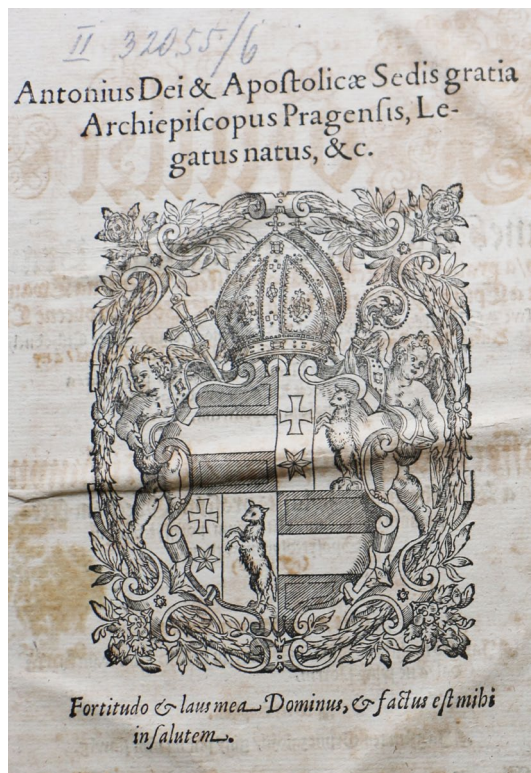 II 32055/6
Antonius Dei & Apoſtolicæ Sedis gratia
Archiepiſcopus Pragenſis, Le-
gatus natus, &c.
Fortitudo & laus mea Dominus, & factus eſt mihi
in ſalutem.